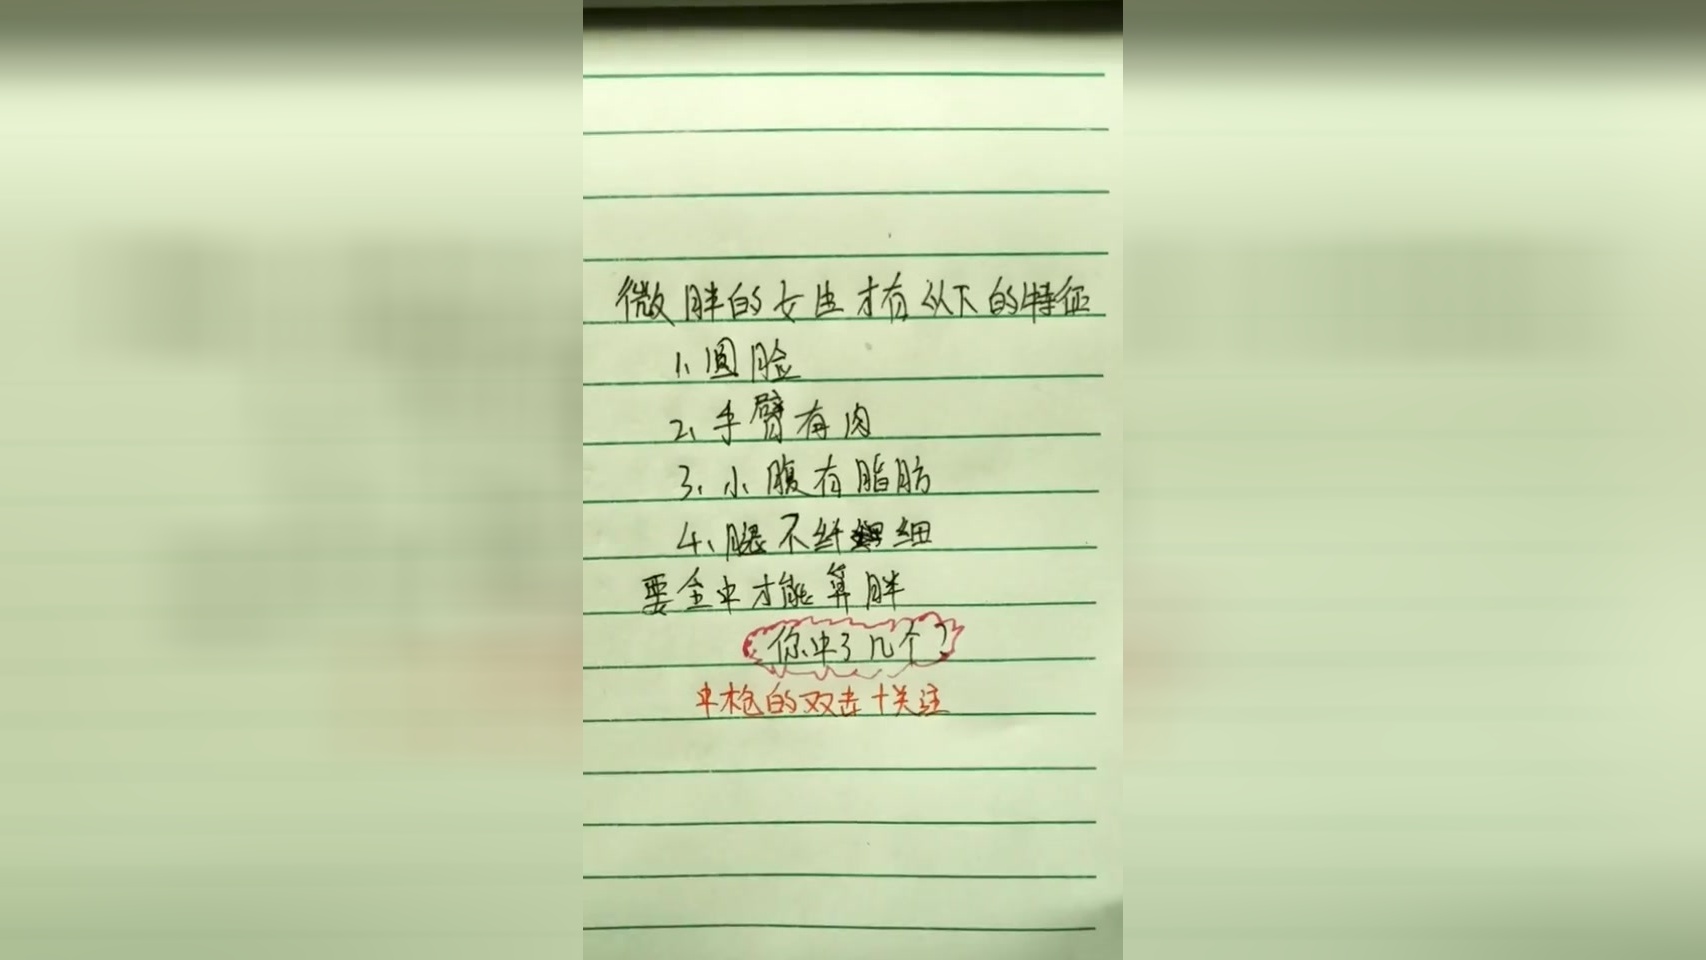 微胖的女生才有以下的特征
1、圆脸
2、手臂有肉
3、小腹有脂肪
4、腿不纤细
要全中才能算胖
你中了几个?
中枪的双击+关注